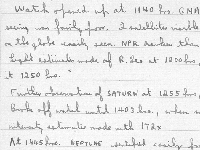 Watch opened up at 1940 hrs. GMA
seeing was fairly poor. 2 satellites
on the globe easily seen. NPR darker than
light estimate made of R. Leo at 1200 hrs,
at 1250 hrs.
Further observation of SATURN at 1255 hrs,
Broke off watch until 1405 hrs, where
intensity estimates made with 172x
At 1405 hrs. NEPTUNE easily